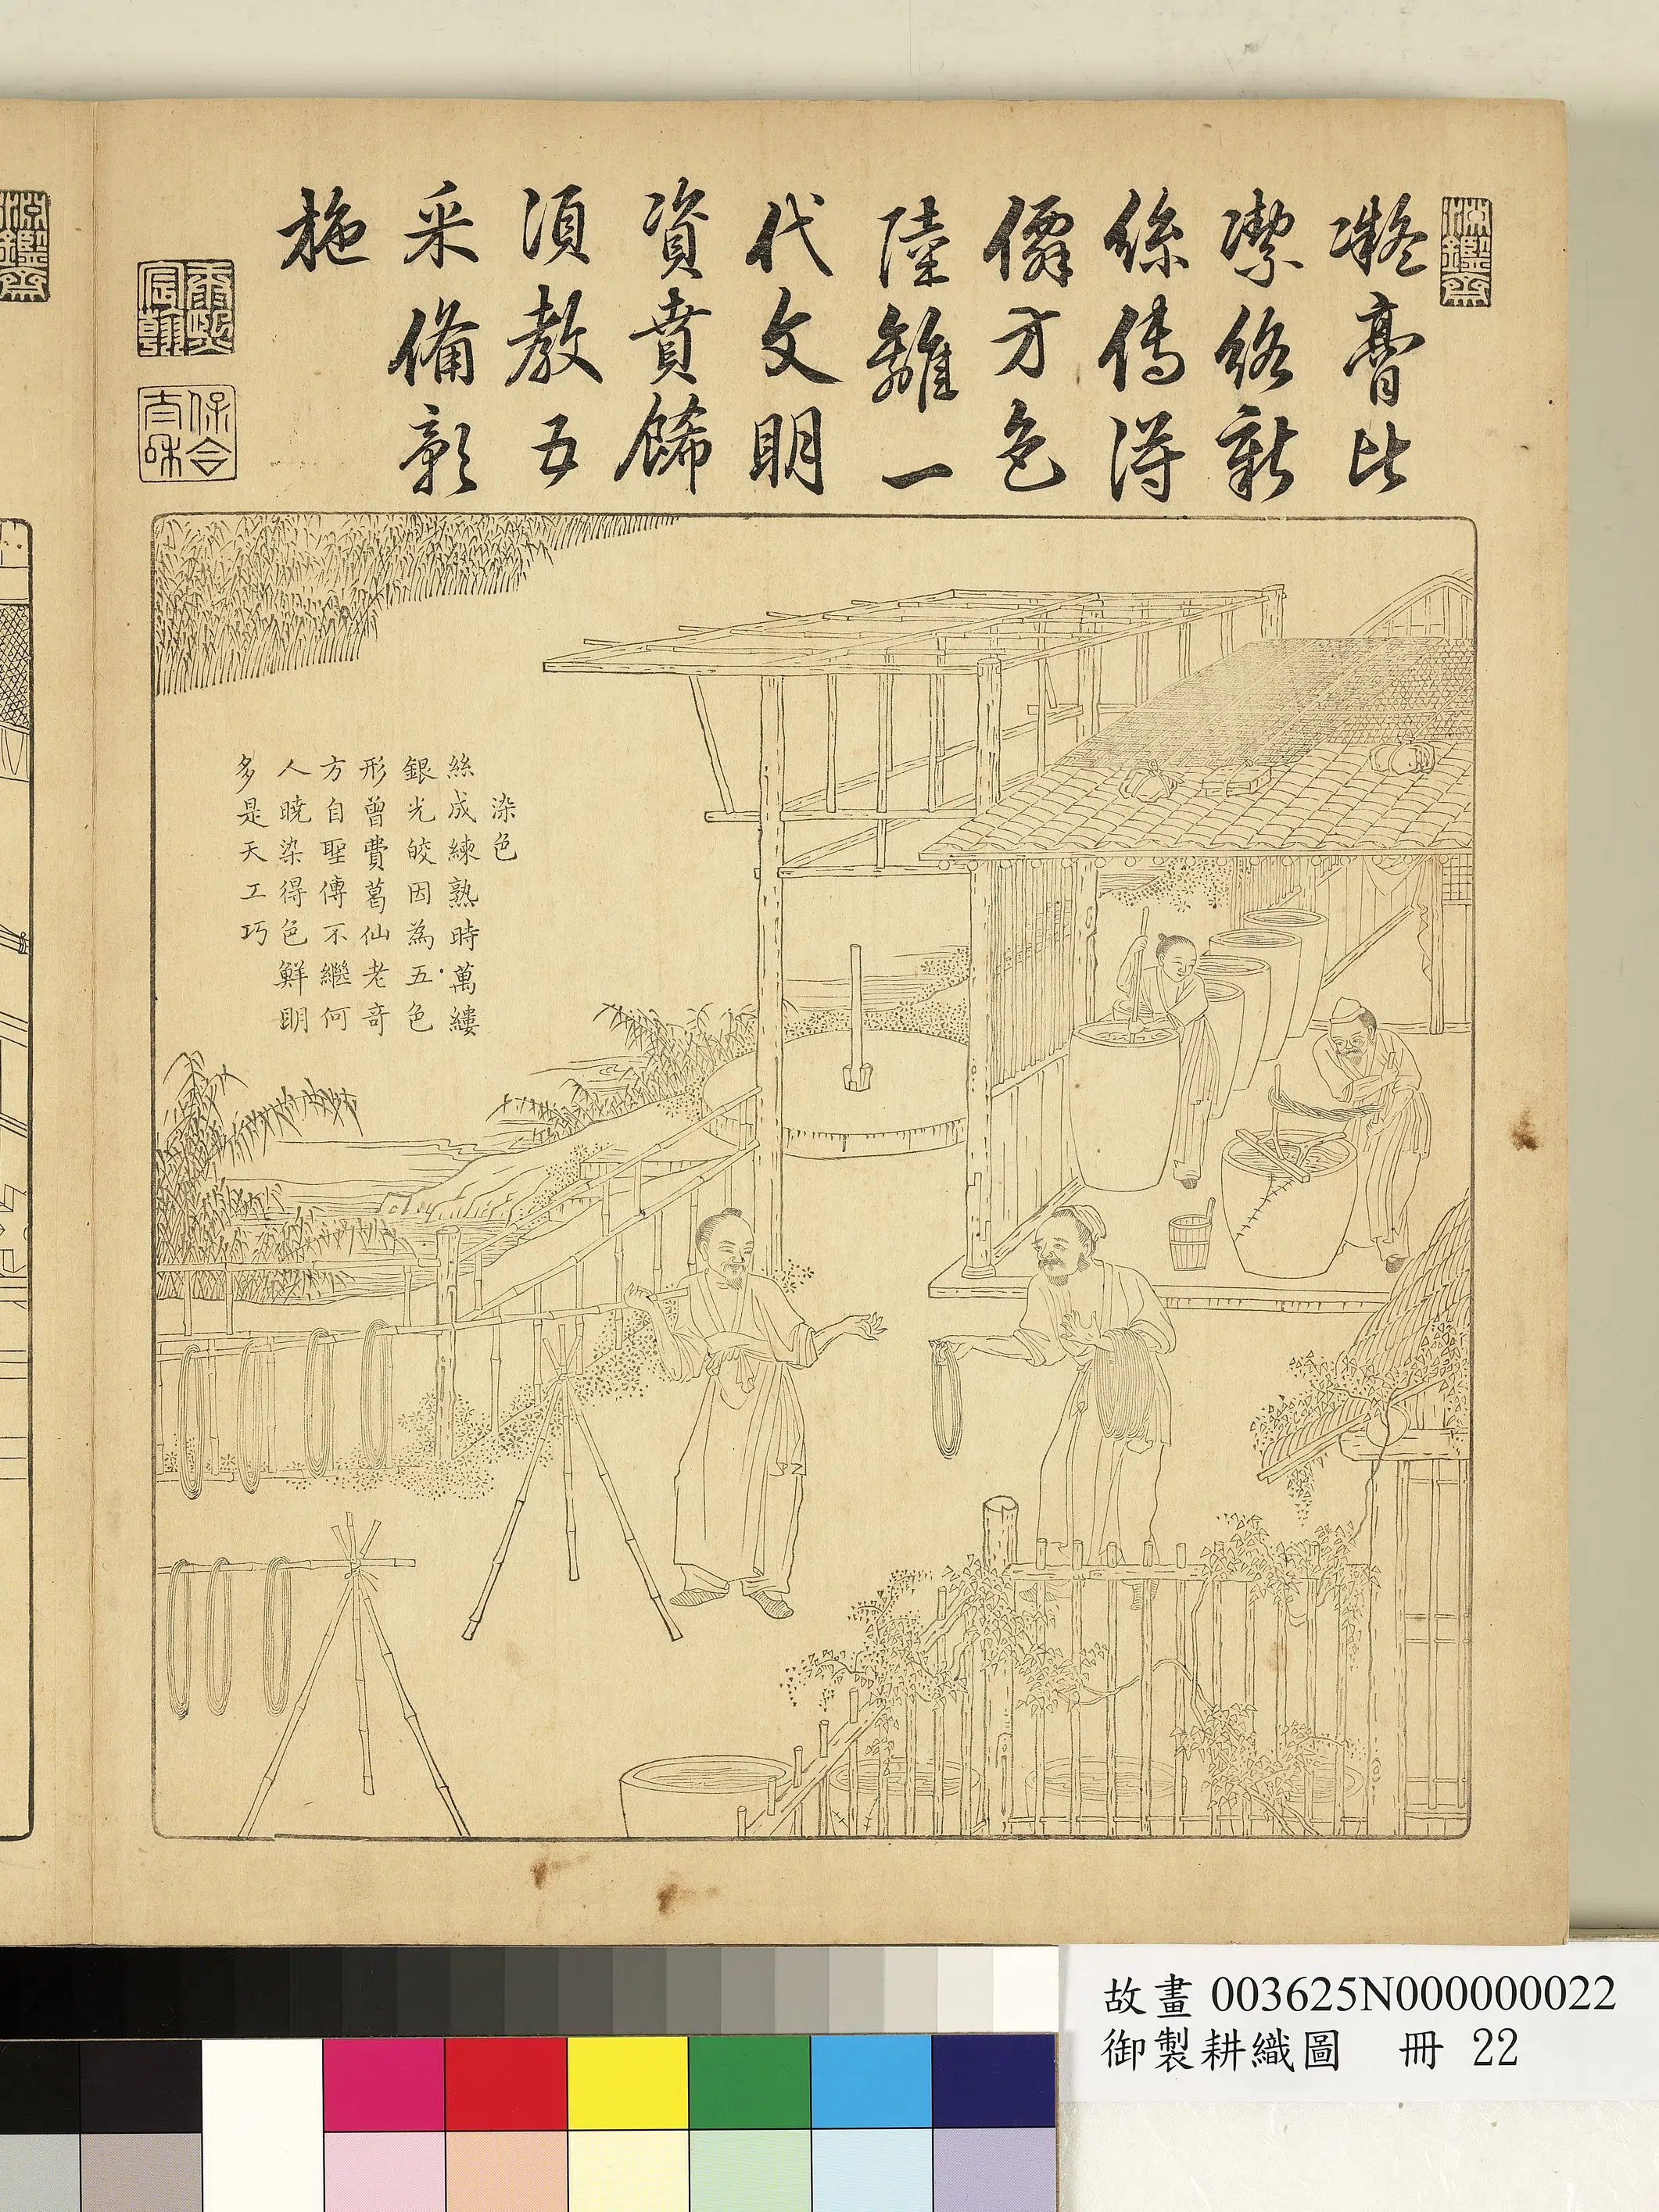 淵鑑齋
凝膏比
潔絡新
絲傳得
僊方色
陸離一
代文明
資賁餙
須教五
采備彰
施
康熙宸翰
保合太和
染色
絲成練熟時萬縷
銀光皎因為五色
形曾費葛仙老奇
方自聖傳不繼何
人曉染得色鮮明
多是天工巧
故畫 003625N000000022
御製耕織圖 冊 22